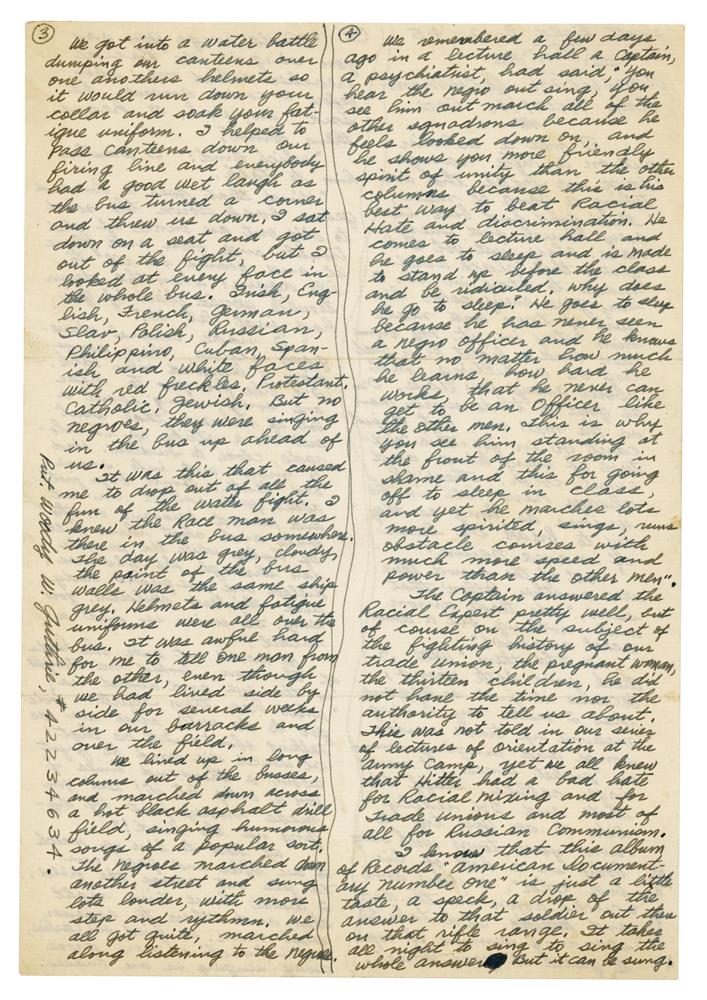 3
We got into a water battle
dumping our canteens over
one anothers helmets so
it would run down your
collar and soak your fat-
igue uniform. I helped to
pass canteens down our
firing line and everybody
had a good wet laugh as
the bus turned a corner
and threw us down. I sat
down on a seat and got
out of the fight, but I
looked at every face in
the whole bus. Irish, Eng-
lish, French, German,
Slav, Polish, Russian,
Philippino, Cuban, Span-
ish and white faces
with red freckles. Protestant.
Catholic. Jewish. But no
negroes, they were singing
in the bus up ahead of
us.
It was this that caused
me to drop out of all the
fun of the water fight. I
knew the Race man was
there in the bus somewhere.
The day was grey, cloudy,
the paint of the bus
walls was the same ship
grey. Helmets and fatigue
uniforms were all over the
bus. It was awful hard
for me to tell one man from
the other, even though
we had lived side by
side for several weeks
in our barracks and
over the field.
We lived up in long
colums out of the busses,
and marched down across
a hot black asphalt drill
field, singing humorous
songs of a popular sort.
The negroes marched down
another street and sung
lots louder, with more
step and rythmn. We
all got quite, marched
along listening to the negroe.
Pvt. Woody W. Guthrie, # 42234634.
4
We remembered a few days
ago in a lecture hall a Captain,
a psychiatrist, had said, "you
hear the negro out sing, you
see him out march all of the
other squadrons because he
feels looked down on, and
he shows you more friendly
spirit of unity than the other
columns because this is his
best way to beat Racial
Hate and discrimination. He
comes to lecture hall and
he goes to sleep and is made
to stand up before the class
and be ridiculed. Why does
he go to sleep? He goes to sleep
because he has never seen
a negro officer and he knows
that no matter how much
he learns, how hard he
works, that he never can
get to be an Officer like
the other men. This is why
you see him standing at
the front of the room in
shame and this for going
off to sleep in class,
and yet he marches lots
more spirited, sings, runs
obstacle courses with
much more speed and
power than the other men".
The Captain answered the
Racial Expert pretty well, but
of course on the subject of
the fighting history of our
trade union, the pregnant woman,
the thirteen children, he did
not have the time nor the
authority to tell us about.
This was not told in our series
of lectures of orientation at the
army camp, yet we all knew
that Hitler had a bad hate
for Racial mixing and for
Trade Unions and most of
all for Russian Communism.
I know that this album
of Records "American Document-
ary number one" is just a little
taste, a speck, a drop of the
answer to that soldier out there
on that rifle range. It takes
all night to sing to sing the
whole answer But it can be sung.